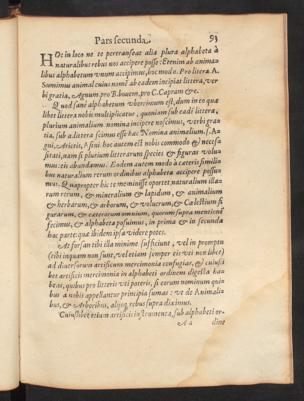 Pars secunda. 93
HOc in loco ne te pertranseat alia plura alphabeta à
naturalibus rebus nos accipere posse: Etenim ab anima-
libus alphabetum vnum accipimus, hoc modo. Pro litera A.
Sumimus animal cuius nomẽ ab eadem incipiat litera, ver-
bi gratia, Agnum, pro B. bouem, pro C. Capram &c.
Quod sanè alphabetum vberrimum est, dum in eo qua
libet littera nobis multiplicatur, quoniam sub eadẽ littera,
plurium animalium nomina incipere noscimus, verbi gra-
tia, sub A littera scimus esse hæc Nomina animalium. s. A-
gni, Arietis, Asini. hoc autem est nobis commodo & neces-
sitati, nam si plurium litterarum species & figuras volu-
mus: eis abundamus. Eodem autem modo à cæteris simili-
bus naturalium rerum ordinibus alphabeta accipere possu-
mus. Quapropter hic te meminisse oportet naturalium illa-
rum rerum, & miueralium & lapidum, & animalium
& herbarum, & arborum, & volucrum, & Cœlestium fi
gurarum, & cæterarum omnium, quorum supra mentionẽ
fecimus, & alphabeta posuimus, in prima & in secunda
hac parte: quæ ibidem ipsa videre potes.
At forsan tibi illa minimè sufficiunt, vel in promptu
(tibi inquam non sunt, vel etiam semper eis vti non libet)
ad diuersorum artificum mercimonia confugias, & cuiusli
bet artificis mercimonia in alphabeti ordinem digesta ha-
beas, quibus pro litteris vti poteris, si eorum nominum qui-
bus à nobis appellantur principia sumas: vt de Animali-
bus, & Arboribus, alijsq; rebus supra diximus.
Cuiuslibet etiam artificis instrumenta, sub alphabeti or-
Aa dine